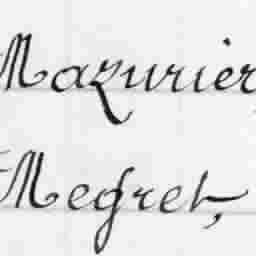 Mazurier,
Megret,